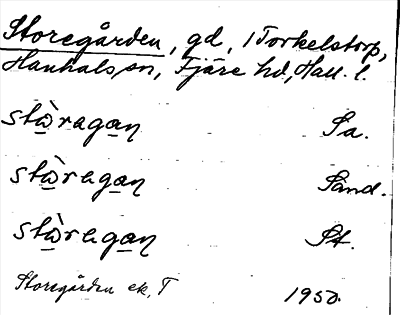 Storegården, gd, i Torkelstorp,
Hanhals sn, Fjäre hd, Hall. l.
stὼragaɳ Sa.
stὼragaɳ Sand.
stὼragaɳ St.
Storegården ek. T 1950.